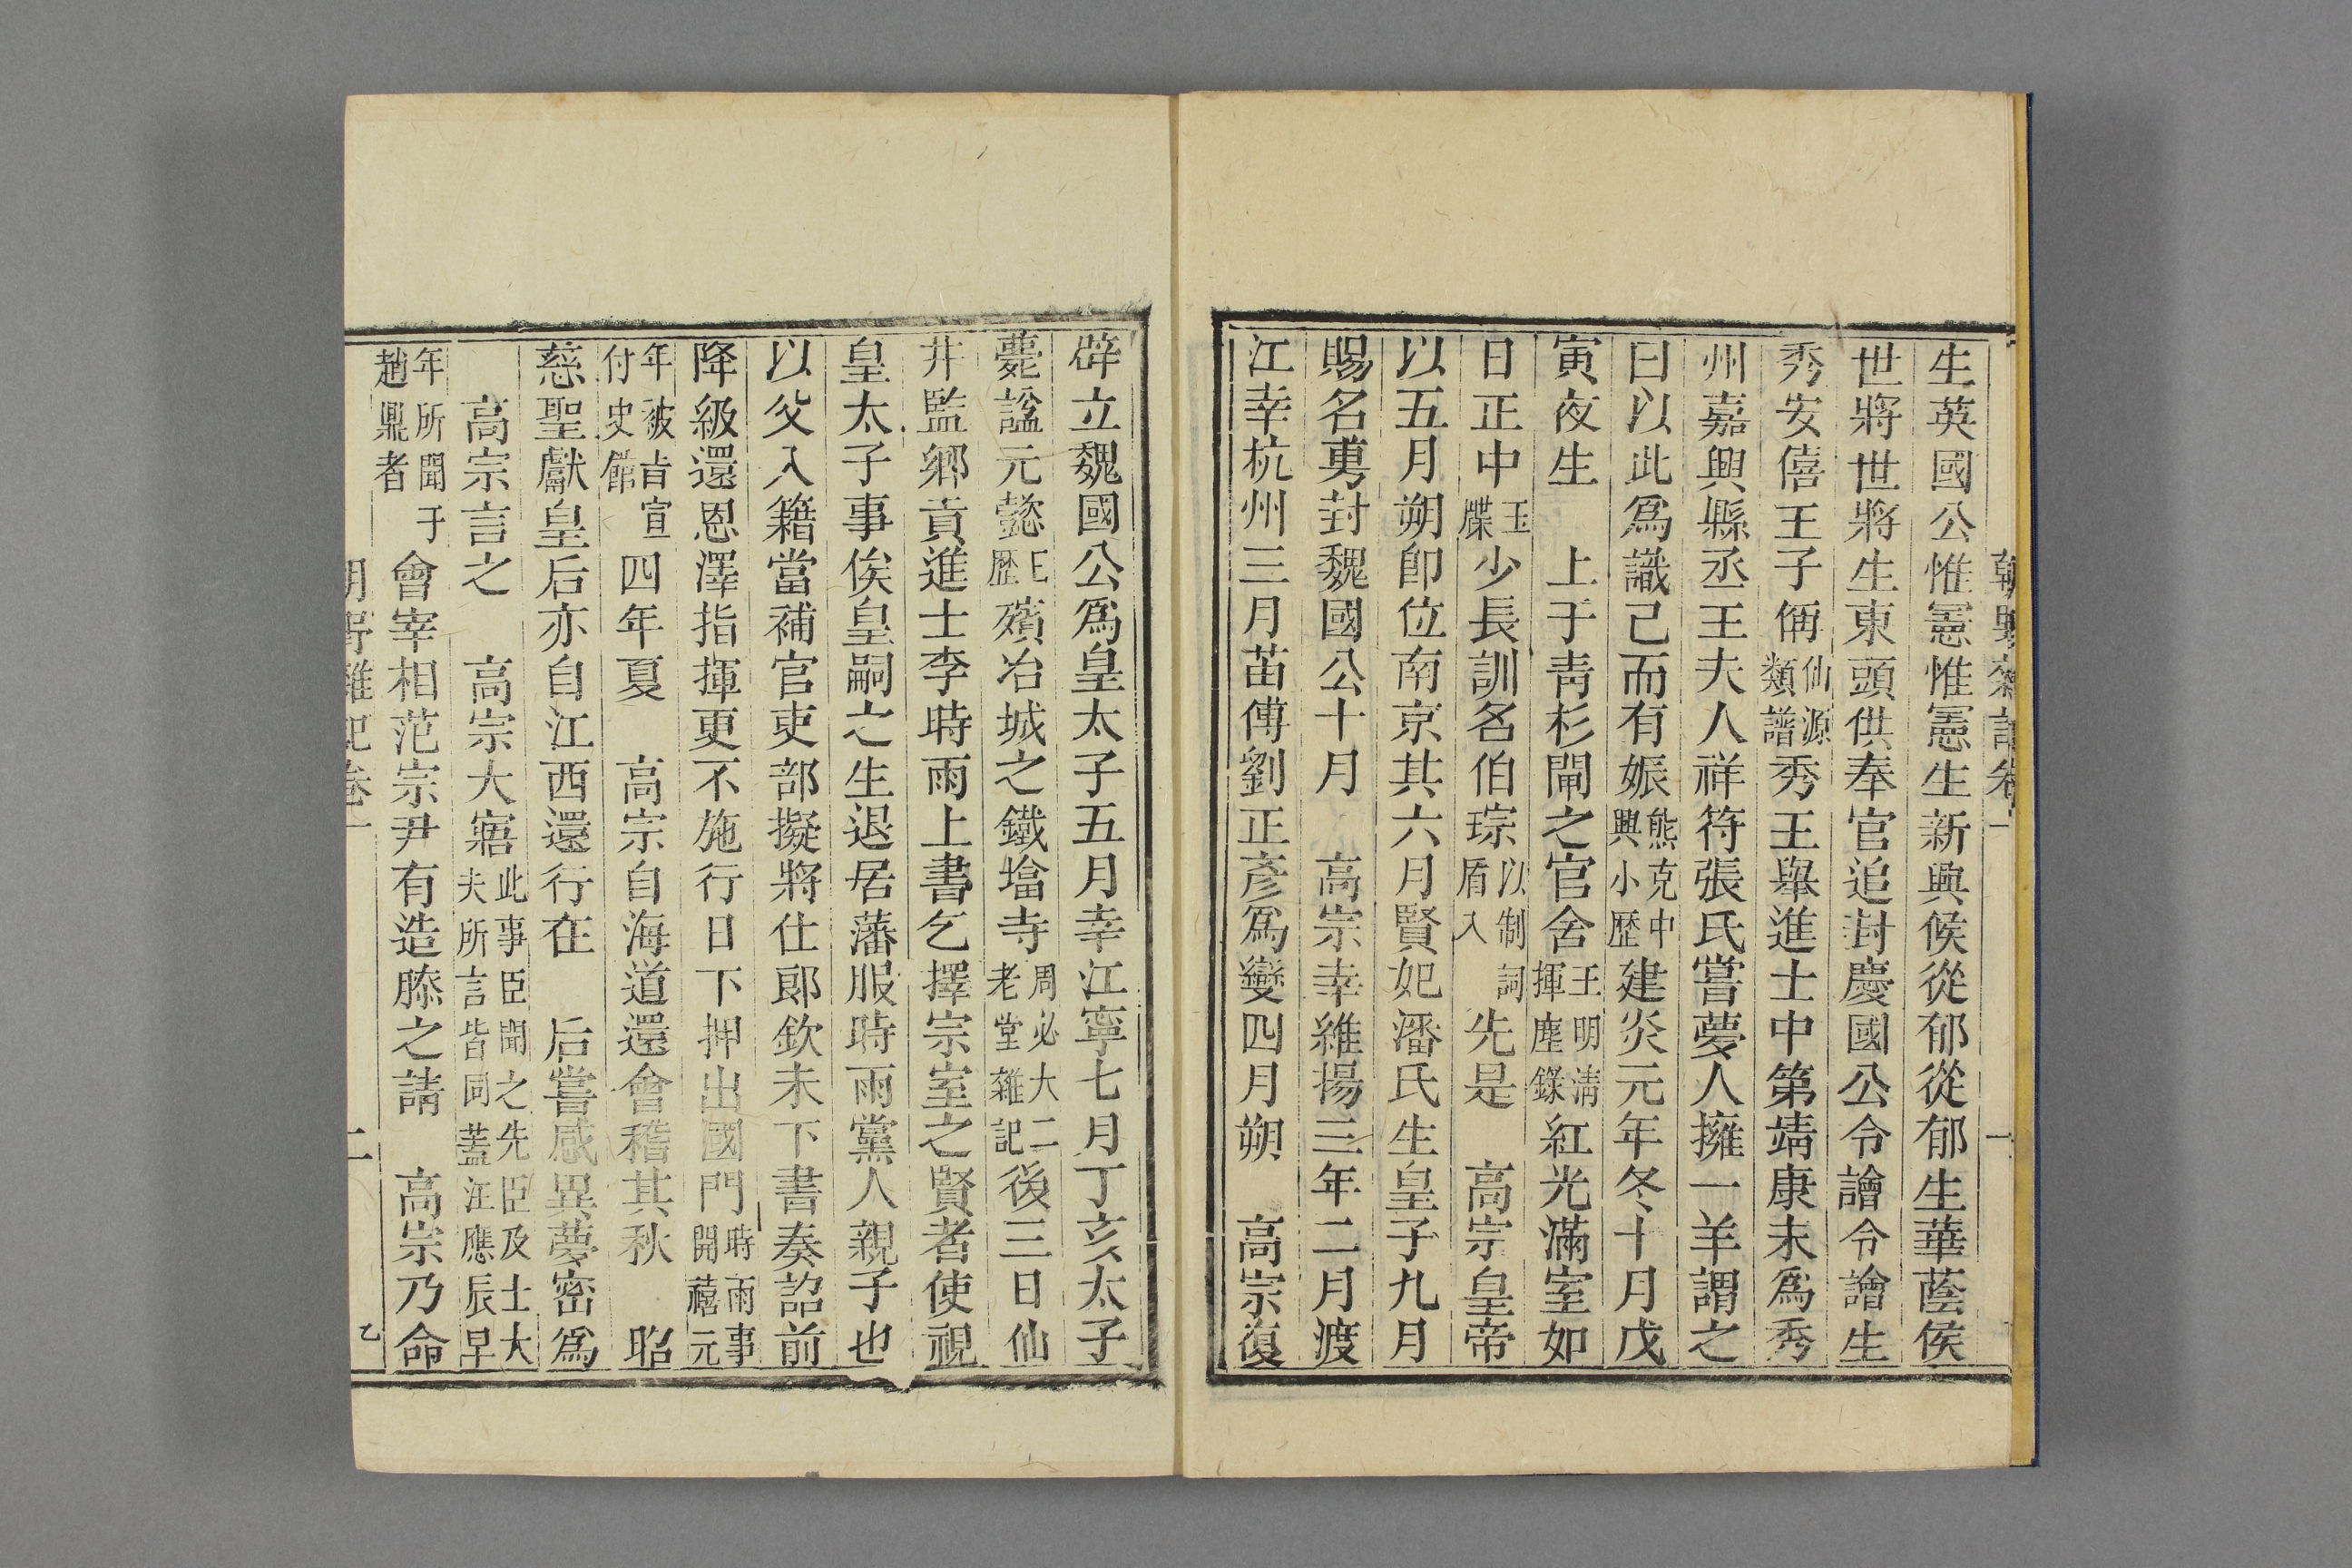 生英國公惟憲惟憲生新興侯從郁從郁生華蔭侯
世將世將生東頭供奉官追封慶國公令譮令譮生
秀安僖王子偁仙源類譜秀王舉進士中第靖康末爲秀
州嘉興縣丞王夫人祥符張氏嘗夢人擁一羊謂之
曰以此爲識已而有娠熊克中興小歷建炎元年冬十月戊
寅夜生 上于靑杉閘之官舍王明淸揮塵錄紅光滿室如
日正中玉牒少長訓名伯琮以制詞盾入先是 高宗皇帝
以五月朔卽位南京其六月賢妃潘氏生皇子九月
賜名旉封魏國公十月 高宗幸維揚三年二月渡
江幸杭州三月苗傅劉正彥爲變四月朔 高宗復
辟立魏國公爲皇太子五月幸江寧七月丁亥太子
薨諡元懿王歷殯冶城之鐵塔寺周必大二老堂雜記後三日仙
井監鄉貢進士李時雨上書乞擇宗室之賢者使視
皇太子事俟皇嗣之生退居藩服時雨黨人親子也
以父入籍當補官吏部擬將仕郎欽未下書奏詔前
降級還恩澤指揮更不施行日下押出國門時雨事開禧元
年被旨宣付史館四年夏 高宗自海道還會稽其秋 昭
慈聖獻皇后亦自江西還行在 后嘗感異夢密爲
高宗言之 高宗大寤此事臣聞之先臣及士大夫所言皆同蓋汪應辰早
年所聞于趙鼎者會宰相范宗尹有造膝之請 高宗乃命